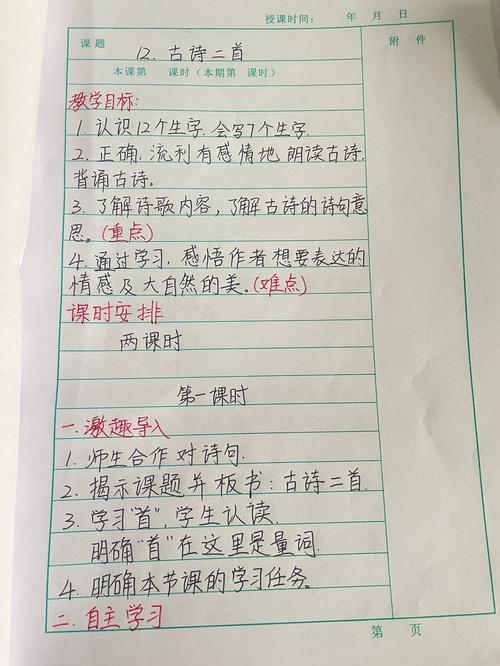 授课时间： 年 月 日
课题 12. 古诗二首
附 件
本课第 课时（本期第 课时）
教学目标:
1. 认识12个生字.会写7个生字.
2. 正确.流利有感情地 朗读古诗.
背诵古诗。
3. 了解诗歌内容，了解古诗的诗句意
思。(重点)
4. 通过学习，感悟作者想要表达的
情感及大自然的美。(难点)
课时安排
两课时
第一课时
一.激趣导入
1. 师生合作对诗句.
2. 揭示课题并板书：古诗二首.
3. 学习"首"，学生认读.
明确"首"在这里是量词.
4. 明确本节课的学习任务。
二.自主学习
第 页